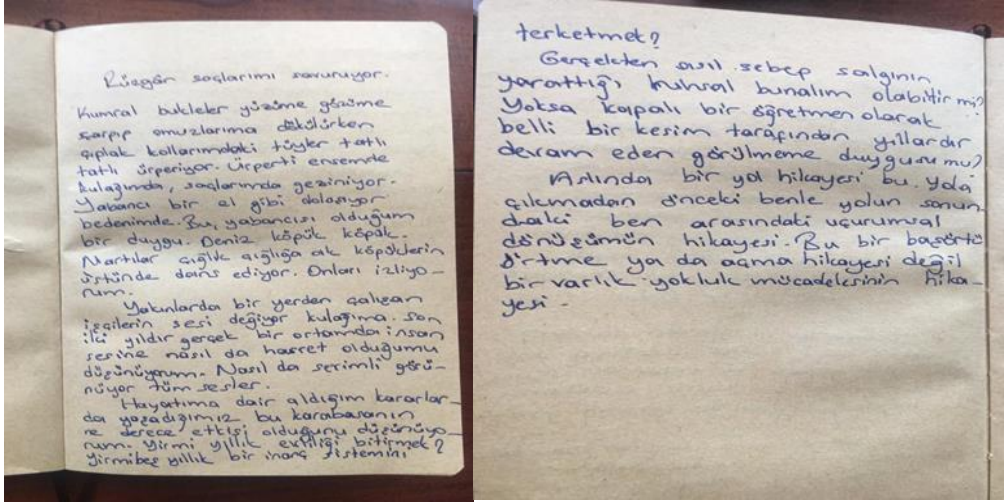 Rüzgâr saçlarımı savuruyor.
Kumral bukleler yüzüme gözüme
çarpıp omuzlarıma dökülürken
çıplak kollarımdaki tüyler tatlı
tatlı ürperiyor. Ürperti ensemde
kulağımda, saçlarımda geziniyor.
Yabancı bir el gibi dolaşıyor
bedenimde. Bu, yabancısı olduğum
bir duygu. Deniz köpük köpük.
Martılar çığlık çığlığa ak köpüklerin
üstünde dans ediyor. Onları izliyo-
rum.
Yakınlarda bir yerden çalışan
işçilerin sesi değiyor kulağıma. Son
iki yıldır gerçek bir ortamda insan
sesine nasıl da hasret olduğumu
düşünüyorum. Nasıl da sevimli görü-
nüyor tüm sesler.
Hayatıma dair aldığım kararlar-
da yaşadığımız bu karabasanın
ne derece etkisi olduğunu düşünüyo-
rum. Yirmi yıllık evliliği bitirmek?
Yirmibeş yıllık bir inanç sistemini
terketmek?
Gerçekten asıl sebep salgının
yarattığı ruhsal bunalım olabilir mi?
Yoksa kapalı bir öğretmen olarak
belli bir kesim tarafından yıllardır
devam eden görülmeme duygusu mu?
Aslında bir yol hikayesi bu. Yola
çıkmadan önceki benle yolun sonun-
daki ben arasındaki uçurumsal
dönüşümün hikayesi. Bu bir başörtü
örtme ya da açma hikayesi değil
bir varlık yokluk mücadelesinin hika-
yesi.